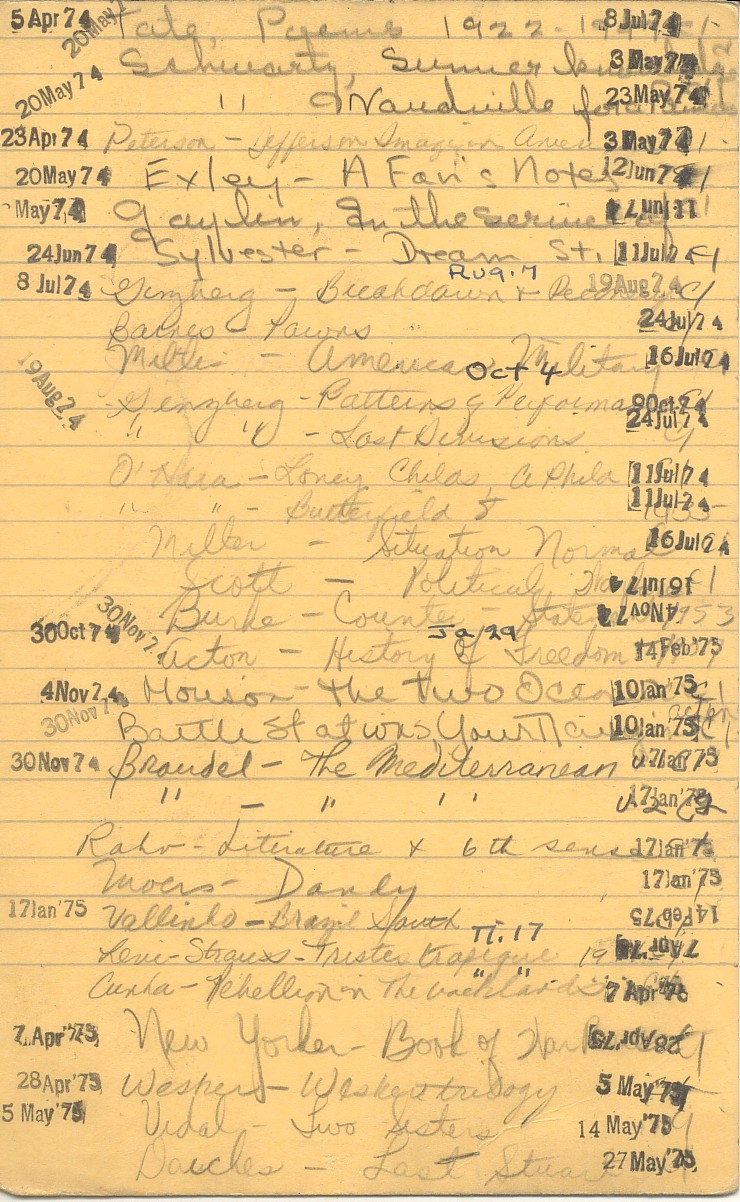 5 Apr 74 Tate, Poems 1922- 8 Jul 74
20 May 74 Schwartz, Summer 3 May 74
20 May 74 " Vaudeville for a 23 May 74
23 Apr 74 Peterson - Jefferson Image in Amer 3 May 74
20 May 74 Exley - A Fan's Notes 12 Jun 74
May 74 Gaylin, In the Service of
24 Jun 74 Sylvester - Dream St. 11 Jul 74
8 Jul 74 Ginzberg - Breakdown & Recovery Aug. 7 19 Aug 74
Barnes - Pawns 24 Jul 74
Millis - American Military 16 Jul 74
19 Aug 74 Ginzberg - Patterns of Performa Oct 4 9 Oct 74
" " - Lost Divisions 24 Jul 74
O'Hara - Loney Childs, A Phila 11 Jul 74
" " - Butterfield 8 1935 11 Jul 74
Miller - Situation Normal 16 Jul 74
Scott - Political 16 Jul 74
30 Nov 74 Burke - Counter - State 1953 4 Nov 74
30 Oct 74 Acton - History of Freedom Ja 29 14 Feb '75
4 Nov 74 Morison - The Two Ocean 10 Jan '75
30 Nov 7 Battle Stations Your Navy 10 Jan '75
30 Nov 74 Braudel - The Mediterranean v1 17 Jan '75
" - " " v2 C2 17 Jan '75
Rahv - Literature & 6th sense 17 Jan '75
Moers - Dandy 17 Jan '75
17 Jan '75 Vallinho - Brazil South 14 Feb '75
Levi-Strauss - Tristes tropique 7 Apr '75
Cunha - Rebellion in The backlands " " 7 Apr '75
7 Apr '75 New Yorker - Book of War 28 Apr '75
28 Apr '75 Wesker - Wesker trilogy 5 May '75
5 May '75 Vidal - Two Sisters 14 May '75
Daiches - Last Stuart 27 May '75